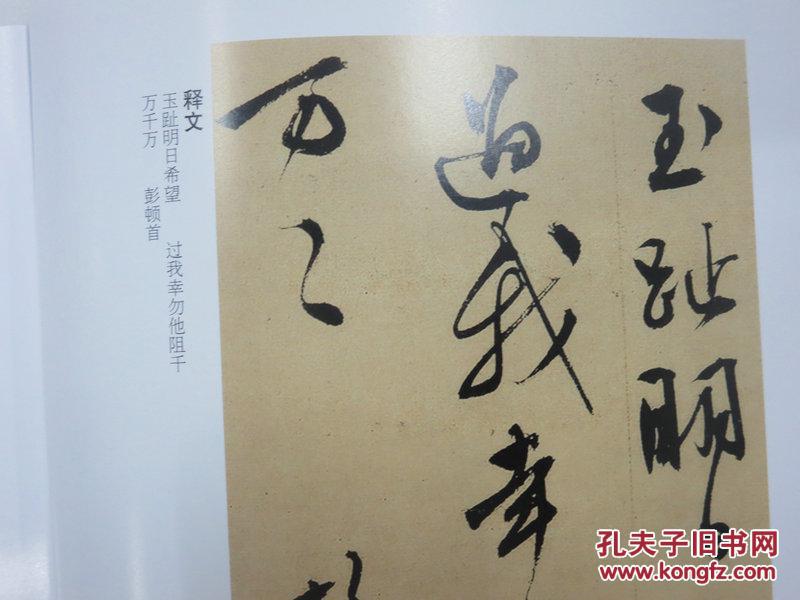 玉趾明
过我幸
万〻
释文
玉趾明日希望　过我幸勿他阻千
万千万　彭顿首
孔夫子旧书网
www.kongfz.com